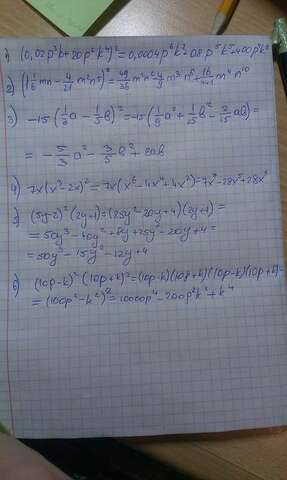 1) (0,02p³k+20p²k⁴)²=0,0004p⁶k²+0,8p⁵k⁵+400p⁴k⁸
2) (1 1/6 mn - 4/21 m²n⁵)²= 49/36 m²n² - 4/9 m³n⁶ + 16/441 m⁴n¹⁰
3) -15(1/3 a - 1/5 b)²=-15(1/9 a² + 1/25 b² - 2/15 ab)=
= -5/3 a² - 3/5 b² + 2ab
4) 7x(x³-2x)²=7x(x⁶-4x⁴+4x²)=7x⁷-28x⁵+28x³
5) (5y-2)²(2y+1)=(25y²-20y+4)(2y+1)=
=50y³-40y²+8y+25y²-20y+4=
=50y³-15y²-12y+4
6) (10p-k)²(10p+k)²=(10p-k)(10p+k)(10p-k)(10p+k)=
=(100p²-k²)²=10000p⁴-200p²k²+k⁴